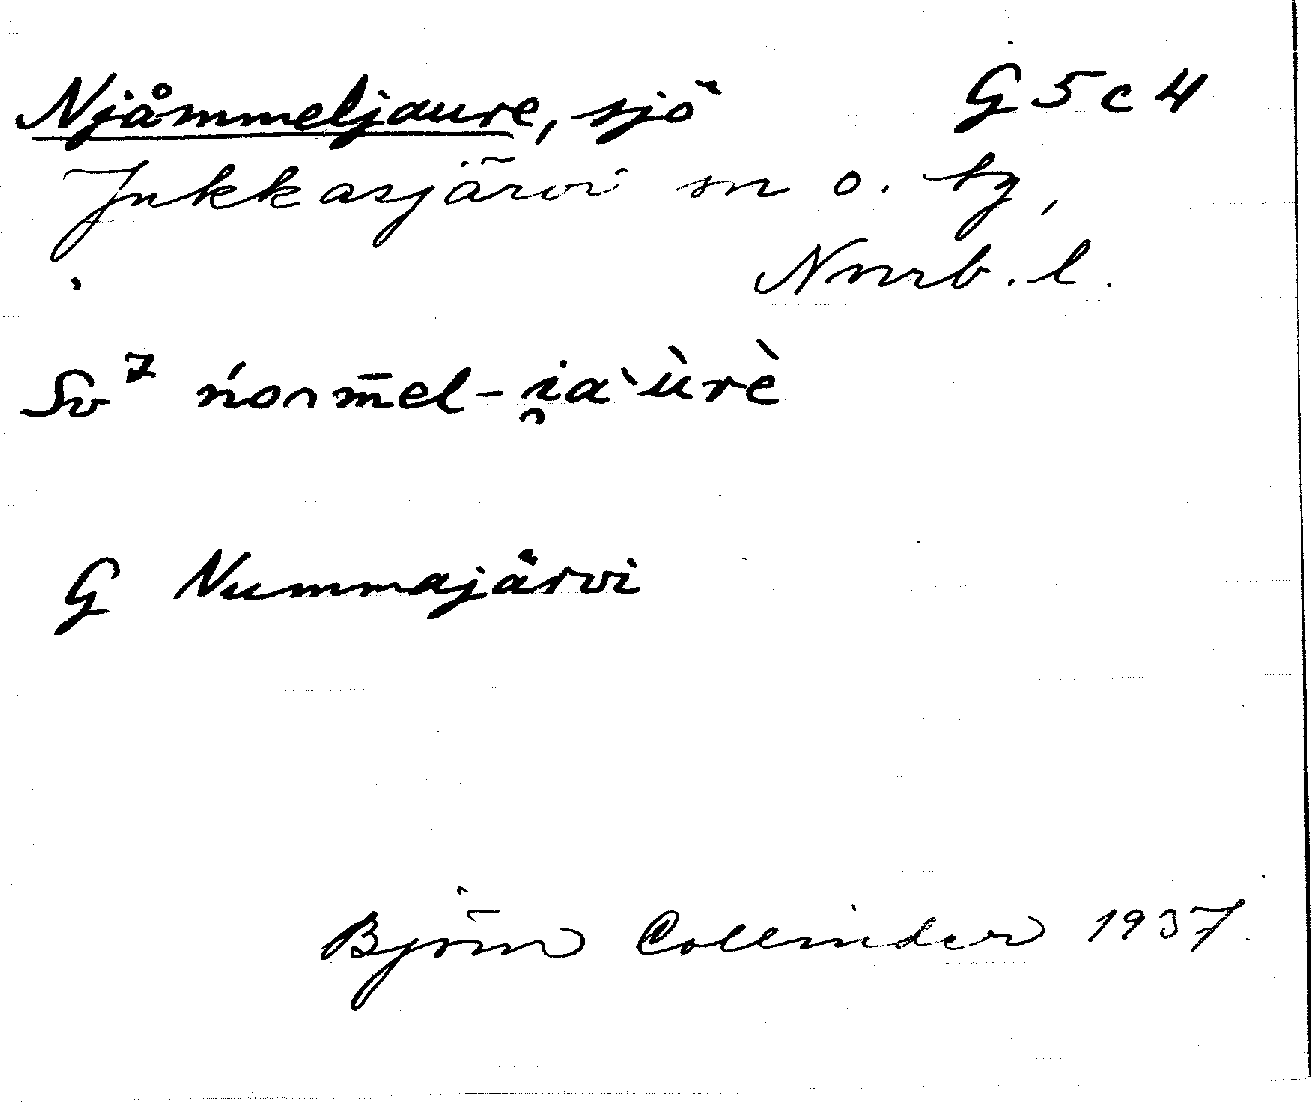 Njåmmeljaure, sjö G5c4
Jukkasjärvi sn o. tg,
Norrb. l.
Sv⁷ ńoṃ̄mel-i̯a`ùrè
G Nummajärvi
Björn Collinder 1937